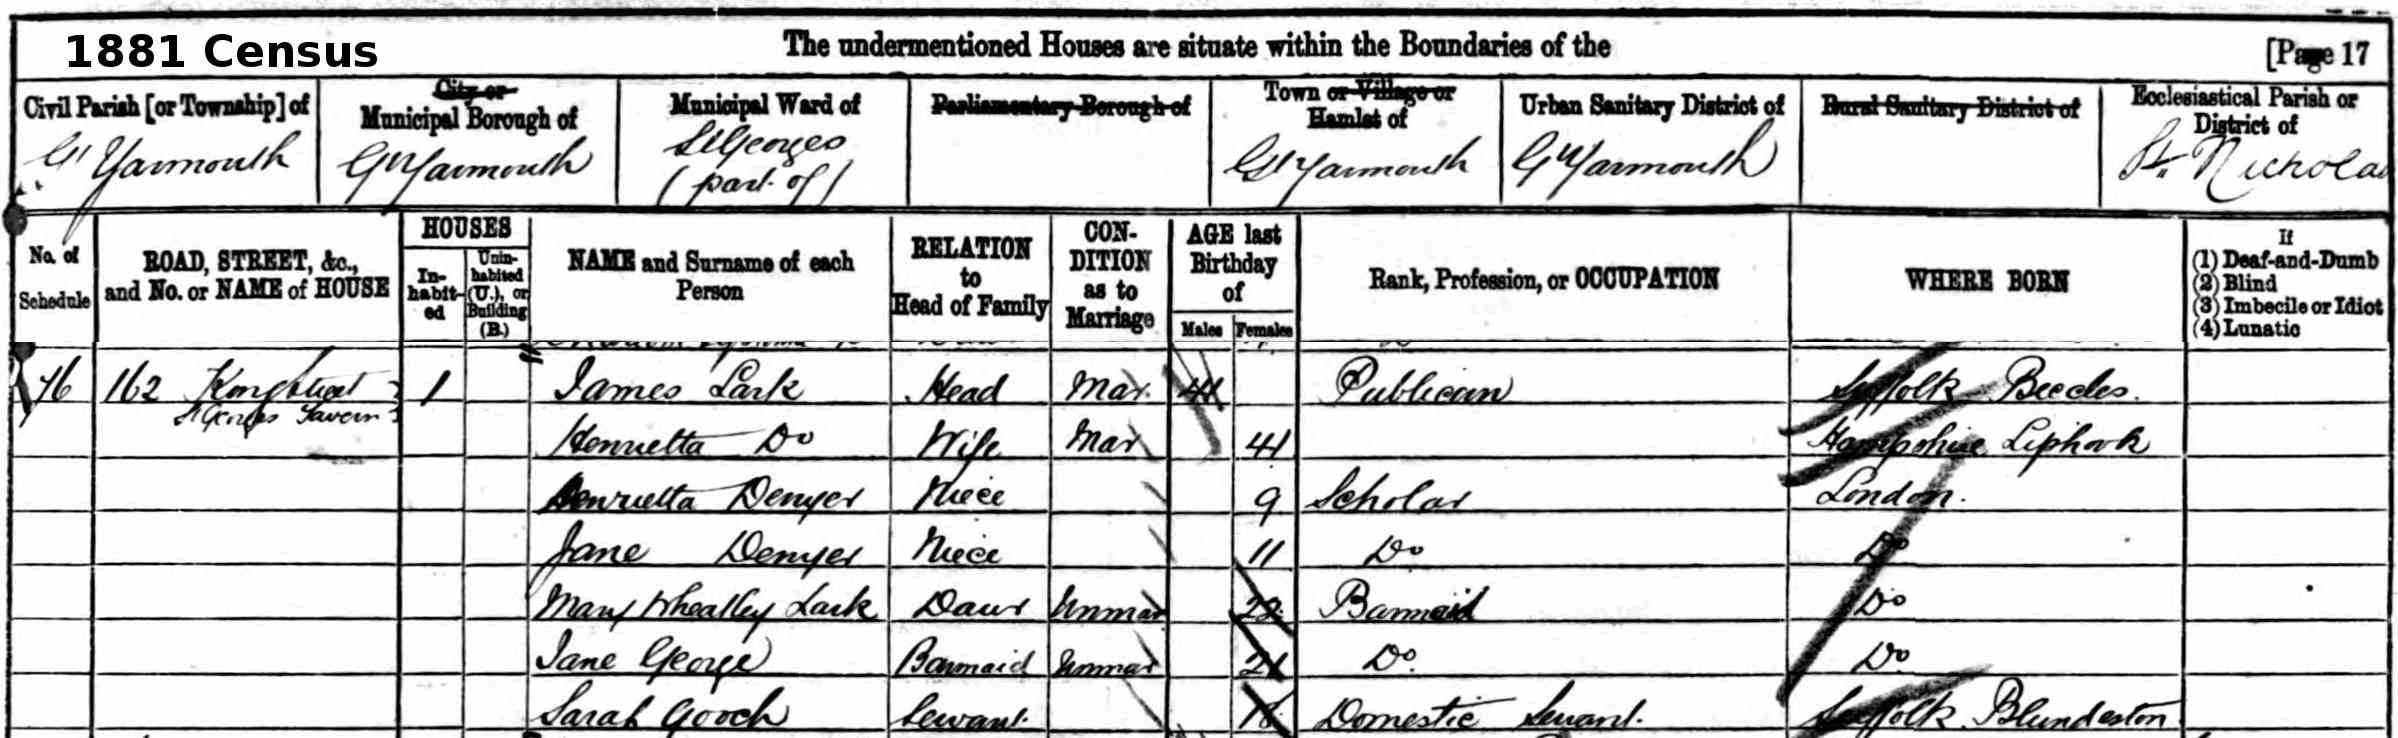 1881 Census
The undermentioned Houses are situate within the Boundaries of the
[Page 17
Civil Parish [or Township] of
City or Municipal Borough of
Municipal Ward of
Parliamentary Borough of
Town or Village or Hamlet of
Urban Sanitary District of
Rural Sanitary District of
Ecclesiastical Parish or District of
Gt Yarmouth
Gt Yarmouth
St Georges (part of)
Gt Yarmouth
Gt Yarmouth
St. Nicholas
No. of Schedule
ROAD, STREET, &c., and No. or NAME of HOUSE
HOUSES
In-habit-ed
Unin-habited (U.), or Building (B.)
NAME and Surname of each Person
RELATION to Head of Family
CON-DITION as to Marriage
AGE last Birthday of
Males
Females
Rank, Profession, or OCCUPATION
WHERE BORN
If
(1) Deaf-and-Dumb
(2) Blind
(3) Imbecile or Idiot
(4) Lunatic
76 162 King Street 1 James Lark Head Mar 41 Publican Suffolk Beccles.
St Georges Tavern
Henrietta Do Wife Mar 41 Hampshire Liphook
Henrietta Denyer Niece 9 Scholar London.
Jane Denyer Niece 11 Do Do
Mary Wheatley Lark Daur Unmar 22 Barmaid Do
Jane George Barmaid Unmar 21 Do. Do
Sarah Gooch Servant. Domestic Servant. Suffolk Blundeston